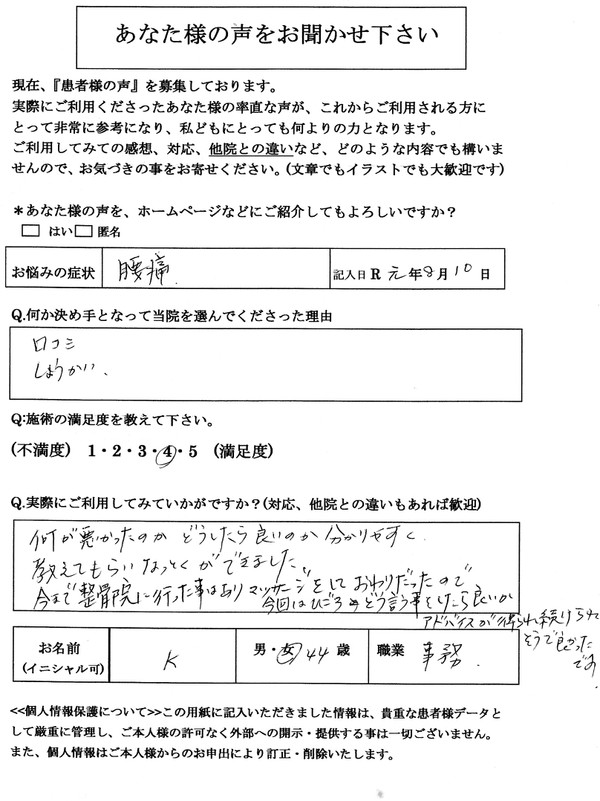 あなた様の声をお聞かせ下さい
現在、『患者様の声』を募集しております。
実際にご利用くださったあなた様の率直な声が、これからご利用される方に
とって非常に参考になり、私どもにとっても何よりの力となります。
ご利用してみての感想、対応、他院との違いなど、どのような内容でも構いま
せんので、お気づきの事をお寄せください。(文章でもイラストでも大歓迎です)
*あなた様の声を、ホームページなどにご紹介してもよろしいですか？
はい 匿名
お悩みの症状 腰痛 記入日 R 元年8月10日
Q.何か決め手となって当院を選んでくださった理由
口コミ
しょうかい、
Q:施術の満足度を教えて下さい。
(不満度) 1・2・3・4・5 (満足度)
Q.実際にご利用してみていかがですか？(対応、他院との違いもあれば歓迎)
何が悪かったのか どうしたら良いのか 分かりやすく
教えてもらい なっとくができました。
今まで整骨院に行った事はあり マッサージをしておわりだったので
今回はひごろのどう言う事をしたら良いか
アドバイスが得られ続けられ
そうで良かった
です。
お名前 K 男・女 44 歳 職業 事務
(イニシャル可)
<<個人情報保護について>>この用紙に記入いただきました情報は、貴重な患者様データと
して厳重に管理し、ご本人様の許可なく外部への開示・提供する事は一切ございません。
また、個人情報はご本人様からのお申出により訂正・削除いたします。